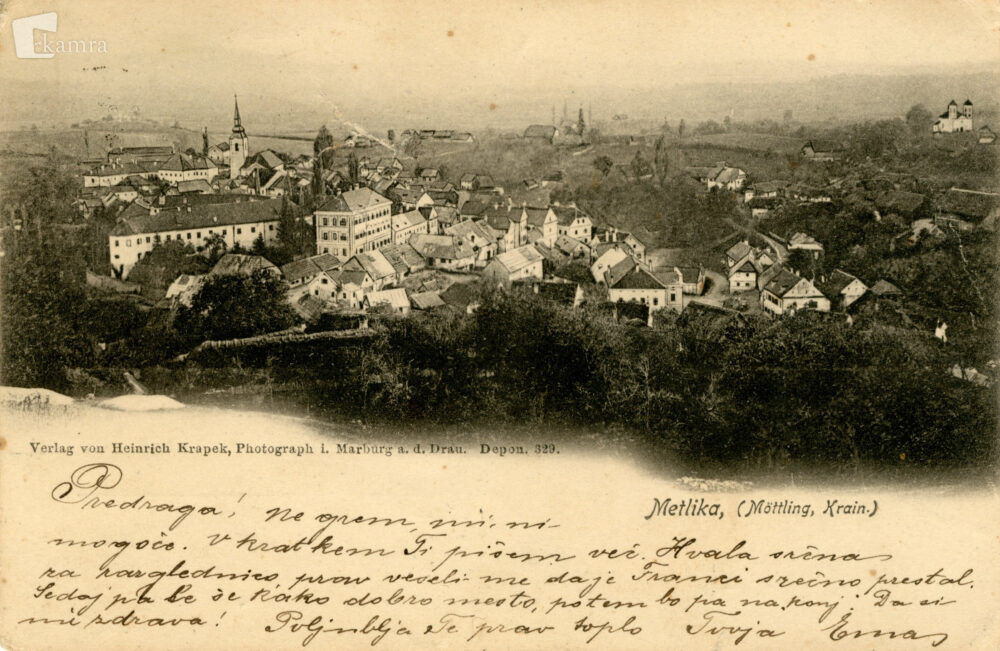 kamra
Verlag von Heinrich Krapek, Photograph i. Marburg a. d. Drau. Depon. 329.
Metlika, (Möttling, Krain.)
Predraga! Ne grem, mi ni
mogoče. V kratkem Ti pišem več. Hvala srčna
za razglednico, prav veseli me da je Franci srečno prestal.
Sedaj pa le še kako dobro mesto, potem bo pa na konj! Da si
mi zdrava! Poljubljа Te prav toplo Tvoja Ema